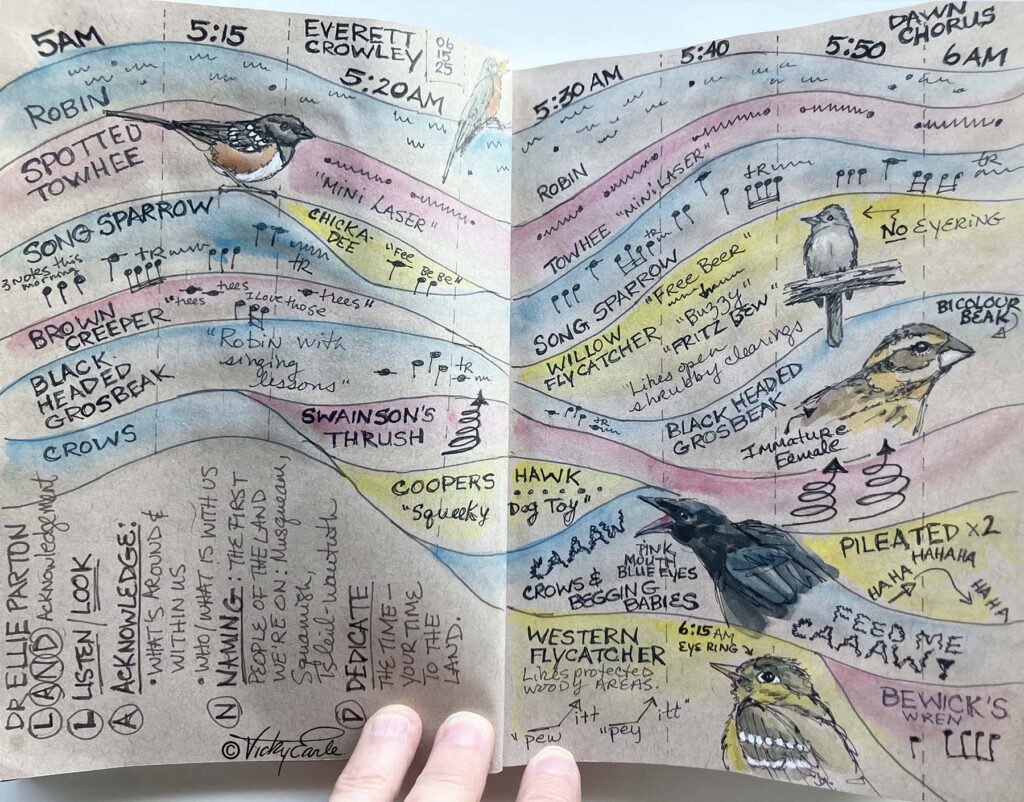 5AM
5:15
EVERETT
CROWLEY
06
15
25
5:20AM
ROBIN
SPOTTED
TOWHEE
"MINI LASER"
SONG SPARROW
3 NOTES this
morning
tR
tR
CHICKA-
DEE
"Fee
Be Be"
BROWN
CREEPER
"trees
trees
I love those
trees"
BLACK-
HEADED
GROSBEAK
"Robin with
singing
lessons"
tR
CROWS
SWAINSON'S
THRUSH
COOPERS
"Squeeky
DR ELLIE PARTON/
LAND Acknowledgement
L LISTEN/LOOK
A ACKNOWLEDGE:
"WHAT'S AROUND &
WITHIN US
"WHO/WHAT IS WITH US
N NAMING: THE FIRST
PEOPLE OF THE LAND
WE'RE ON: Musqueam,
Squamish,
Tsleil-Waututh
D DEDICATE
THE TIME-
YOUR TIME
TO THE
LAND.
©VickyEarle
DAWN
CHORUS
5:30AM
5:40
5:50
6AM
ROBIN
TOWHEE "MINI LASER"
SONG SPARROW
tR
tR
tR
tR
WILLOW
FLYCATCHER
"FREE BEER"
"Buzzy"
"FRITZ BEW"
"Likes open
shrubby clearings
NO EYERING
BICOLOUR
BEAK
BLACK HEADED
GROSBEAK
tR
Immature
Female
HAWK
Dog Toy"
CAAAW
PINK
MOUTH
BLUE EYES
CROWS &
BEGGING
BABIES
PILEATED X2
HAHAHA
HAHA
HAHA
FEED ME
CAAAW!
WESTERN
FLYCATCHER
Likes protected
WOODY AREAS.
"pew
itt
"pey
itt"
6:15 AM
EYE RING
BEWICK'S
WREN